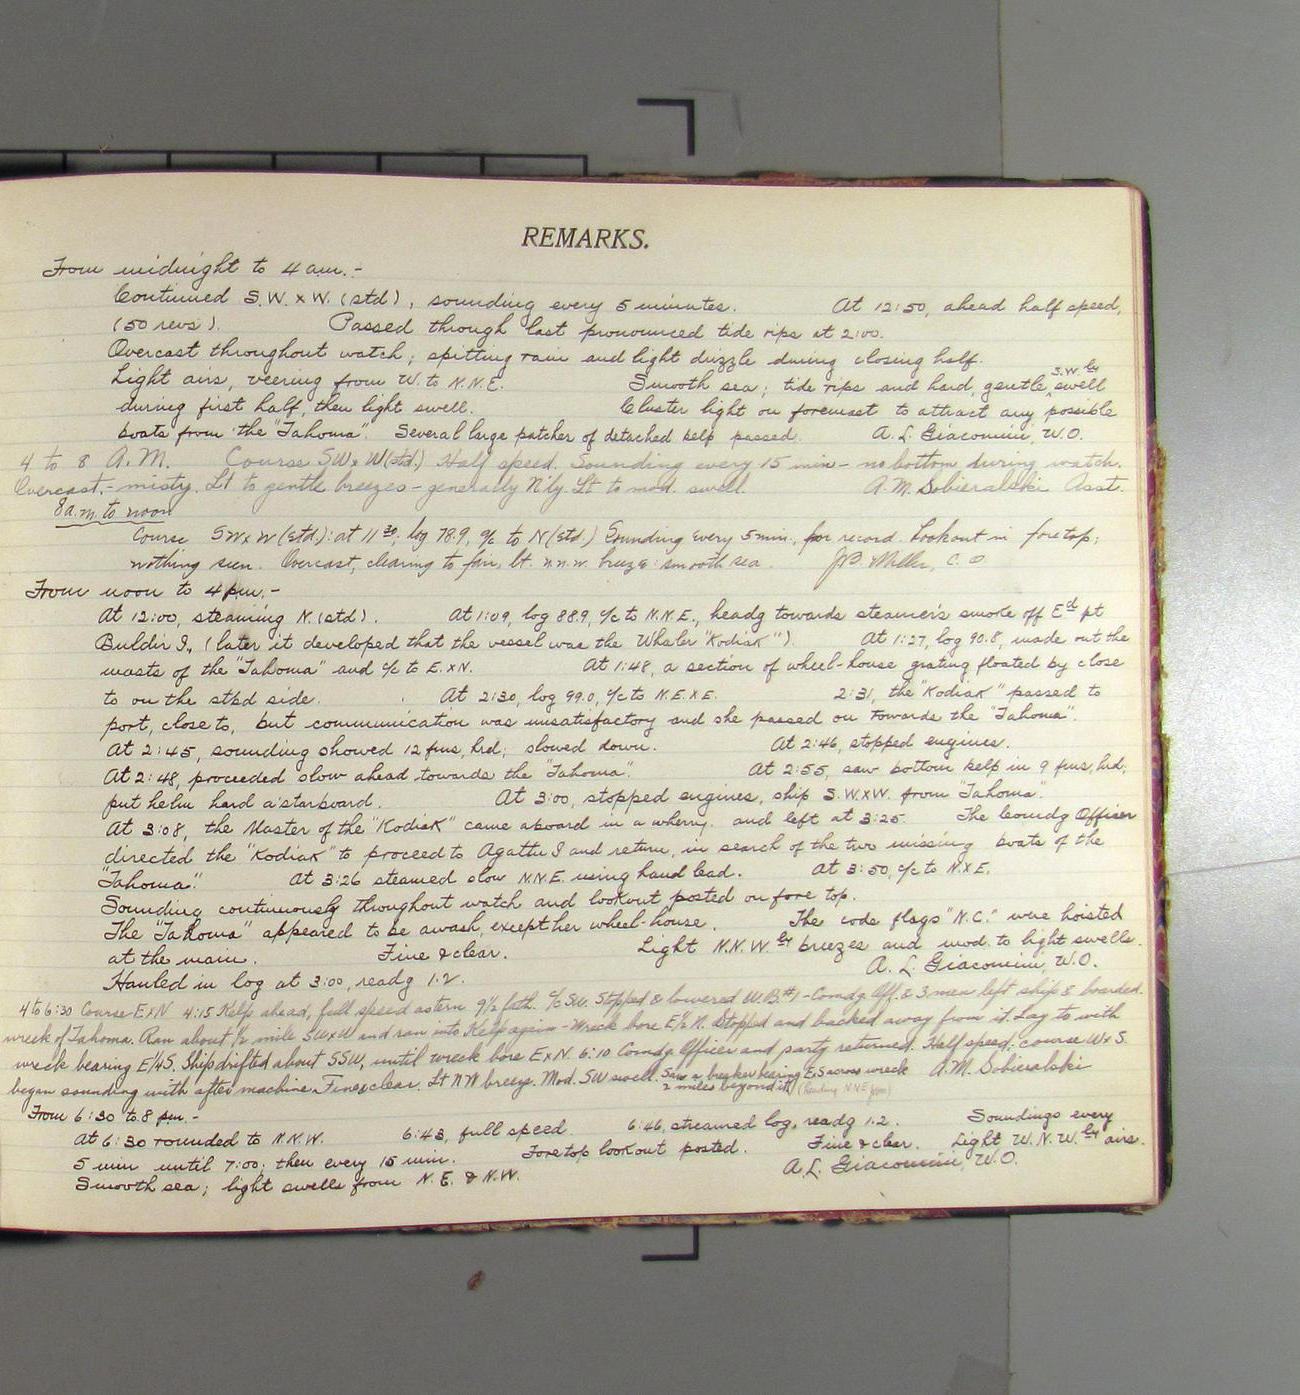 REMARKS.
From midnight to 4 am.-
Continued S.W. x W. (std), sounding every 5 minutes. At 12:50, ahead half speed,
(50 revs). Passed through last pronounced tide rips at 2:00.
Overcast throughout watch; spitting rain and light drizzle during closing half.
Light airs, veering from W. to N.N.E. Smooth sea; tide rips and hard, gentle S.W.ly swell
during first half, then light swell. Cluster light on foremast to attract any possible
boats from the "Tahoma". Several large patches of detached kelp passed. A. L. Giacomini, W.O.
4 to 8 A.M. Course SWxW (std.) Half speed. Sounding every 15 min - no bottom during watch.
Overcast,- misty. Lt to gentle breezes - generally N'ly. Lt to mod. swell. A.M. Sobieralski Asst.
8 a.m. to noon
Course SWxW (Std.): at 11 30, log 78.9, c/c to N (Std.) Sounding every 5 min., for record. Lookout in foretop;
nothing seen. Overcast, clearing to fair; lt. n.n.w. breeze: smooth sea. J.P. Miller, C.O.
From noon to 4 pm.-
At 12:00, steaming N. (std). At 1:09, log 88.9, c/c to N.N.E., headg towards steamer's smoke off Ed pt
Buldir I, (later it developed that the vessel was the Whaler "Kodiak"). At 1:27, log 90.8, made out the
masts of the "Tahoma" and c/c to E.xN. At 1:48, a section of wheel-house grating floated by close
to on the stbd side. At 2:30, log 99.0, c/c to N.E.xE. 2:31, the "Kodiak" passed to
port, close to, but communication was unsatisfactory and she passed on towards the "Tahoma".
At 2:45, sounding showed 12 fms, hrd; slowed down. At 2:46, stopped engines.
At 2:48, proceeded slow ahead towards the "Tahoma". At 2:55, saw bottom kelp in 9 fms, hrd;
put helm hard a'starboard. At 3:00, stopped engines, ship S.W.xW. from "Tahoma".
At 3:08, the Master of the "Kodiak" came aboard in a wherry, and left at 3:25. The Comdg Officer
directed the "Kodiak" to proceed to Agattu I and return, in search of the two missing boats of the
"Tahoma". At 3:26 steamed slow N.N.E. using hand lead. At 3:50, c/c to N.xE.
Sounding continuously throughout watch and lookout posted on fore top.
The "Tahoma" appeared to be awash, except her wheel-house. The code flags "N.C." were hoisted
at the main. Fine & clear. Light N.N.W.ly breezes and mod. to light swells.
Hauled in log at 3:00, readg 1.2. A. L. Giacomini, W.O.
4 to 6:30 Course ExN 4:15 Kelp ahead, full speed astern 9½ fath. c/c SW. Stopped & lowered W.B.#1 - Comdg. Off. & 3 men left ship & boarded
wreck of Tahoma. Ran about ½ mile SWxW and ran into Kelp again - Wreck bore E½N. Stopped and backed away from it. Lay to with
wreck bearing E/4S. Ship drifted about SSW, until wreck bore ExN. 6:10 Comdg Officer and party returned. Half speed; course WxS.
began sounding with after machine. Fine & clear. Lt NW breeze. Mod. SW swell. Saw a breaker bearing ExS across wreck A.M. Sobieralski
2 miles beyond it
From 6:30 to 8 pm.-
At 6:30 rounded to N.N.W. 6:43, full speed. 6:46, streamed log, readg 1.2. Soundings every
5 min until 7:00; then every 15 min. Foretop lookout posted. Fine & clear. Light W.N.W.ly airs.
Smooth sea; light swells from N.E. & N.W. A. L. Giacomini, W.O.